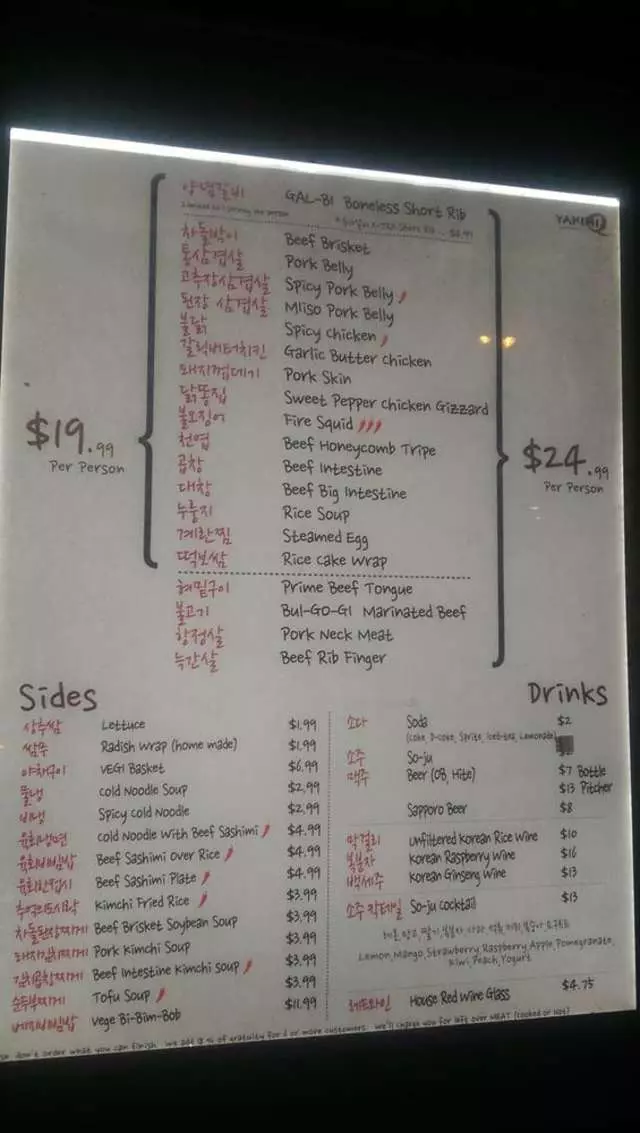 양념갈비 GAL-BI Boneless Short Rib
YAKINI
차돌박이 Beef Brisket
통삼겹살 Pork Belly
고추장삼겹살 Spicy Pork Belly
된장 삼겹살 Miiso Pork Belly
불닭 Spicy Chicken
갈릭버터치킨 Garlic Butter chicken
돼지껍데기 Pork Skin
닭똥집 Sweet Pepper Chicken Gizzard
불오징어 Fire Squid
천엽 Beef Honeycomb Tripe
곱창 Beef Intestine
대창 Beef Big Intestine
누룽지 Rice Soup
계란찜 Steamed Egg
떡보쌈 Rice cake wrap
$19.99
Per Person
혀밑구이 Prime Beef Tongue
불고기 Bul-GO-GI Marinated Beef
항정살 Pork Neck Meat
늑간살 Beef Rib Finger
$24.99
Per Person
Sides
상추쌈 Lettuce $1.99
쌈무 Radish wrap (home made) $1.99
야채구이 VEGI Basket $6.99
물냉 cold Noodle Soup $2.99
비냉 Spicy cold Noodle $2.99
육회냉면 cold Noodle With Beef Sashimi $4.99
육회비빔밥 Beef Sashimi Over Rice $4.99
육회한접시 Beef Sashimi Plate $4.99
추억의도시락 Kimchi Fried Rice $3.99
차돌된장찌게 Beef Brisket Soybean Soup $3.99
돼지김치찌게 Pork Kimchi Soup $3.99
김치곱창찌게 Beef Intestine Kimchi soup $3.99
순두부찌게 Tofu Soup $3.99
베지비빔밥 Vege Bi-Bim-Bob $11.99
Drinks
소다 Soda $2
(Coke, D-coke, Sprite, Iced-tea, Lemonade)
소주 So-ju
맥주 Beer (OB, Hite) $7 Bottle
$13 Pitcher
Sapporo Beer $8
막걸리 unfiltered Korean Rice Wine $10
복분자 Korean Raspberry Wine $16
백세주 Korean Ginseng Wine $13
소주 칵테일 So-ju cocktail $13
Lemon, Mango, Strawberry, Raspberry, Apple, Pomegranate,
Kiwi, Peach, Yogurt
레드와인 House Red Wine Glass $4.75
don't order what you can finish. we add % of gratuity for or more customers. we'll charge you for left over MEAT (cooked or Not)